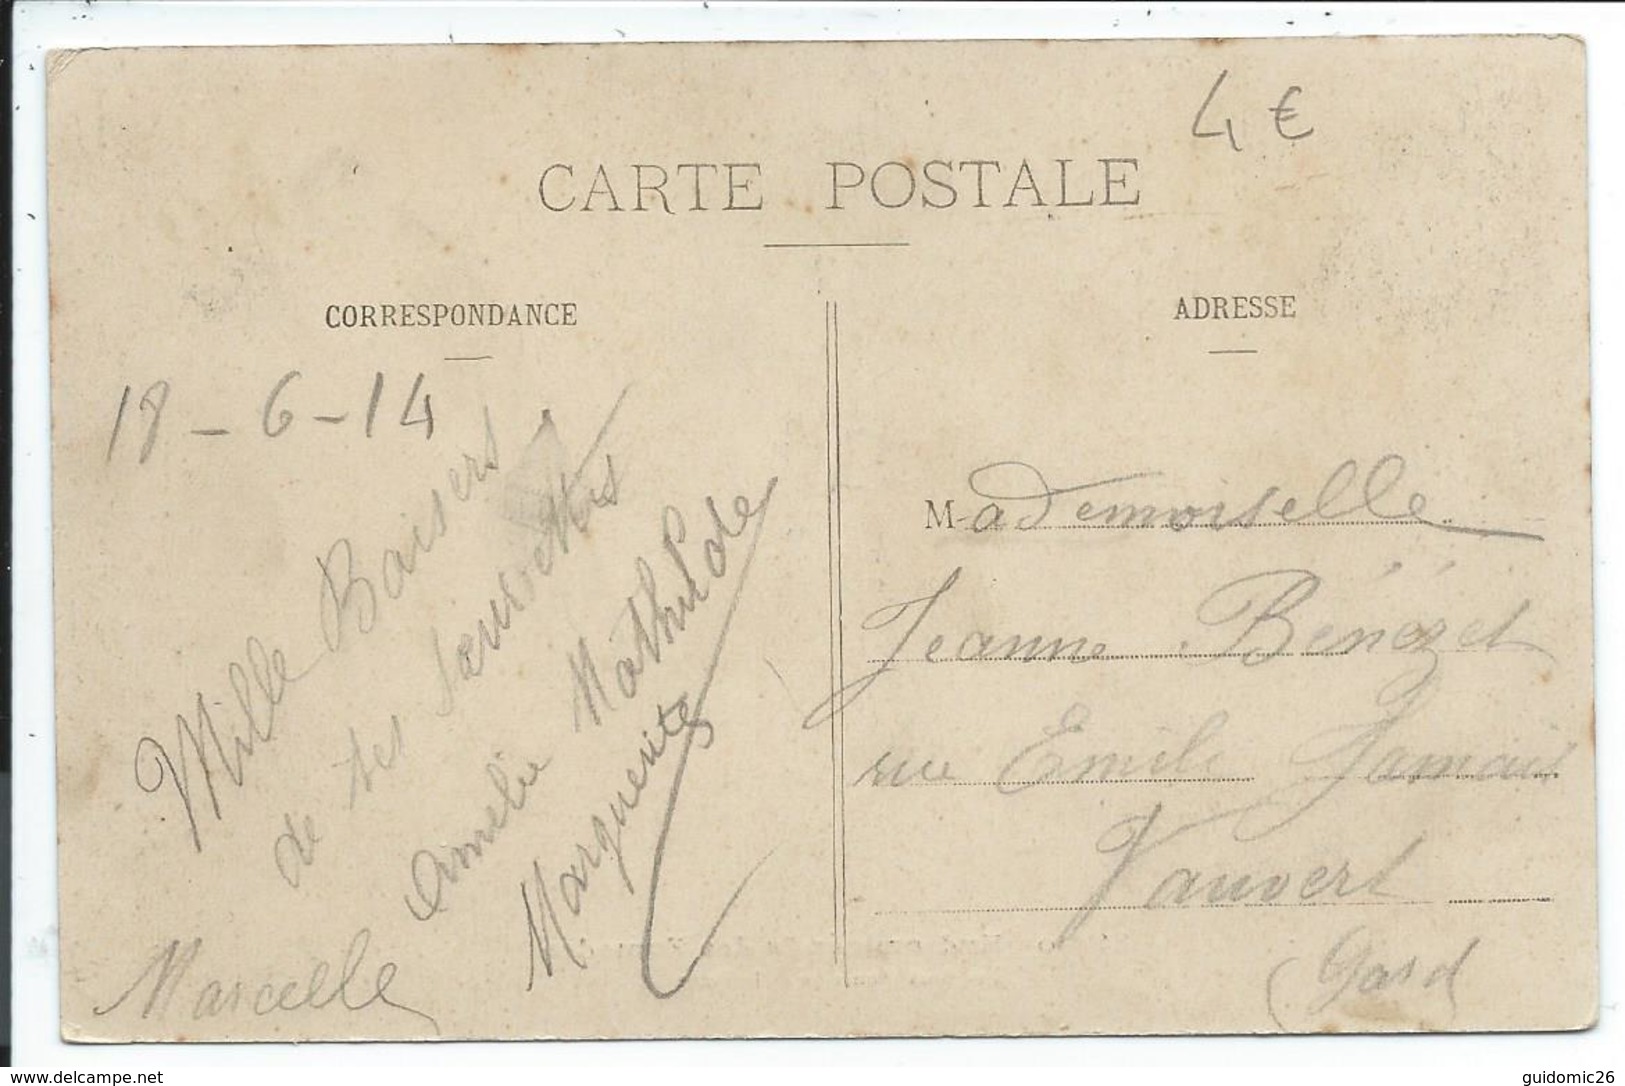 4 €
CARTE POSTALE
CORRESPONDANCE
18-6-14
Mille Baisers
de tes
Amelie Mathilde
Marguerite
Marcelle
ADRESSE
Mademoiselle
Jeanne Bénézet
rue Emile Jamais
Vauvert
(Gard
www.delcampe.net
guidomic26